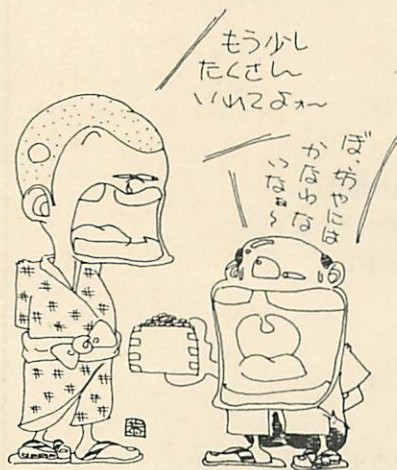 もう少し
たくさん
いれてよォ～
ぼ、坊やには
かなわな
いなぁ～